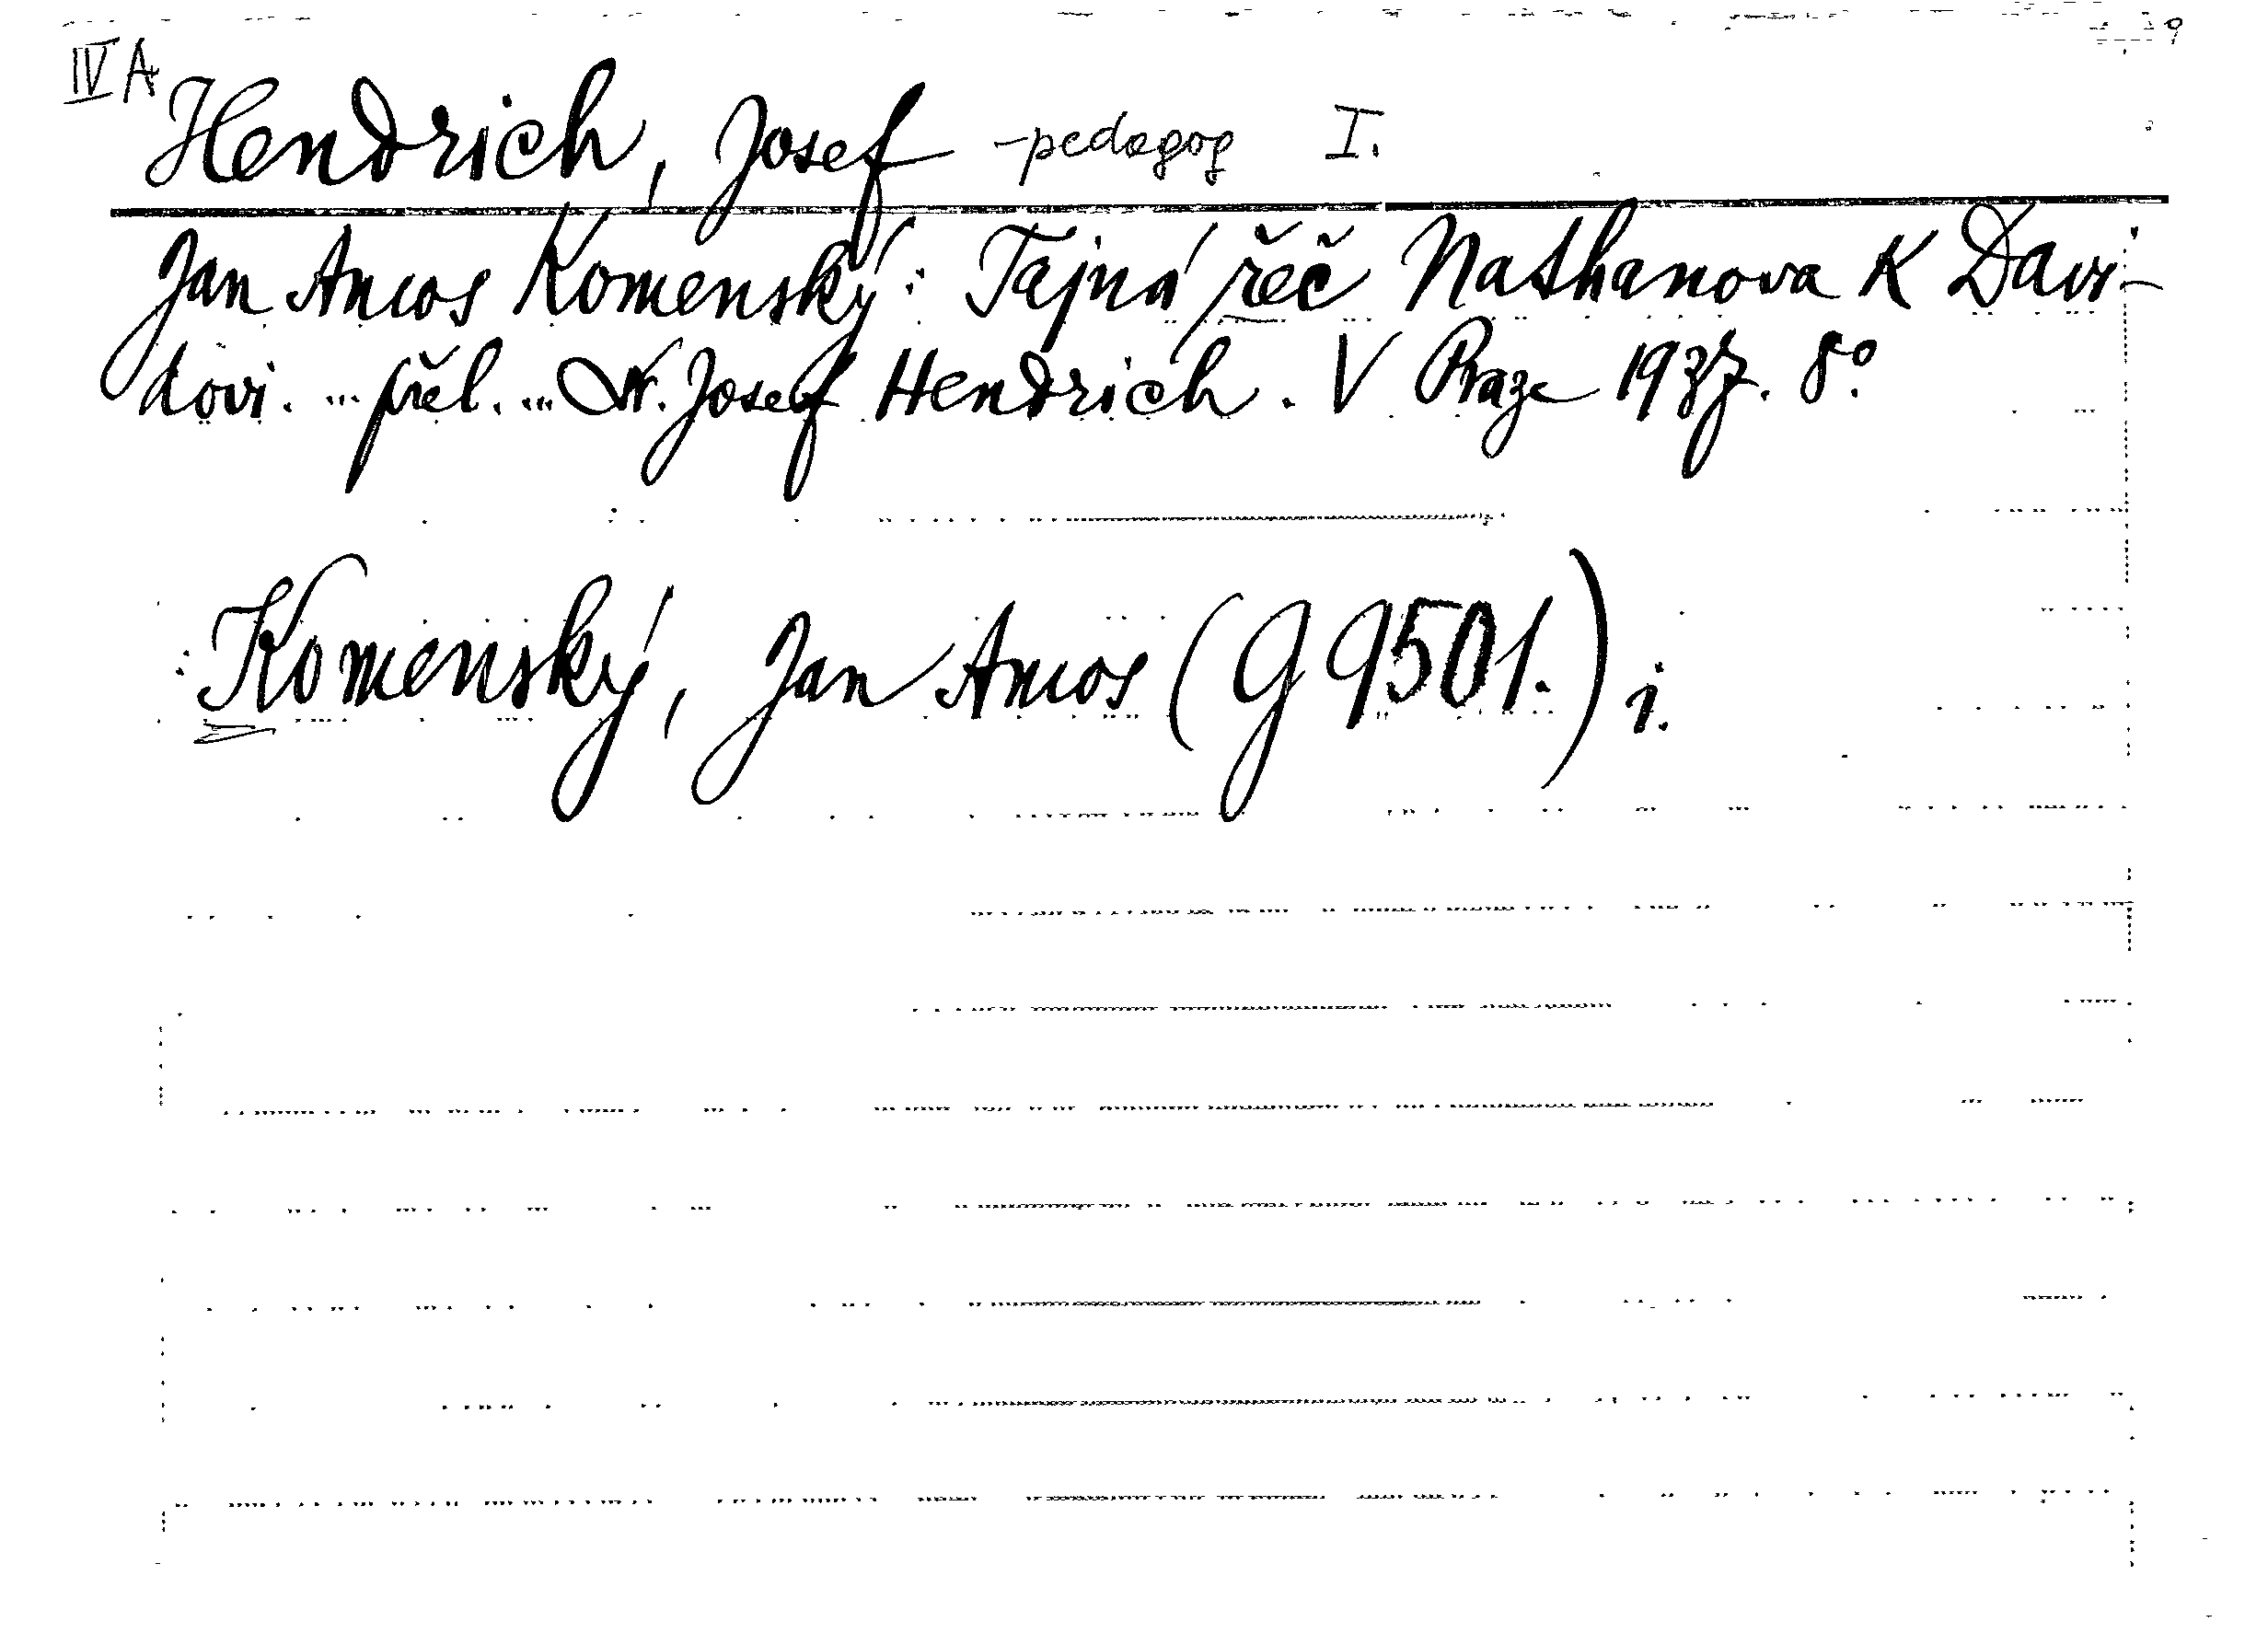 IV A
Hendrich, Josef - pedagog I.
Jan Amos Komenský: Tajná řeč Nathanova k Davi-
dovi. ... přel. ... Dr. Josef Hendrich. V Praze 1937. 8°.
Komenský, Jan Amos (G 9501.) i.